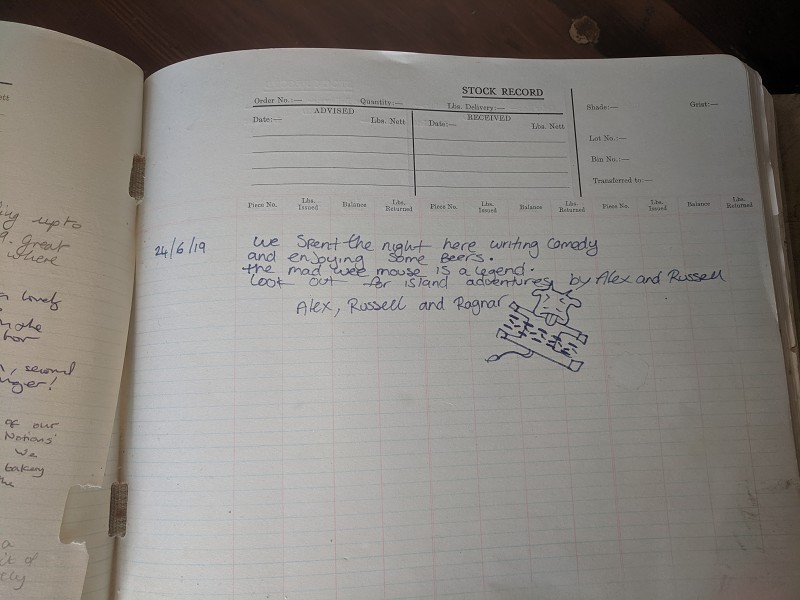 ing up to
great
where
lovely
, second
nger!
of our
Nations'
we
bakery
the
a
it of
STOCK RECORD
Order No.:— Quantity:— Lbs. Delivery:—
ADVISED RECEIVED
Date:— Lbs. Nett Date:— Lbs. Nett
Shade:— Grist:—
Lot No.:—
Bin No.:—
Transferred to:—
Piece No. Lbs. Issued Balance Lbs. Returned Piece No. Lbs. Issued Balance Lbs. Returned Piece No. Lbs. Issued Balance Lbs. Returned
24/6/19 We spent the night here writing comedy
and enjoying some Beers.
the mad wee mouse is a legend.
Look out for island adventures by Alex and Russell
Alex, Russell and Ragnar